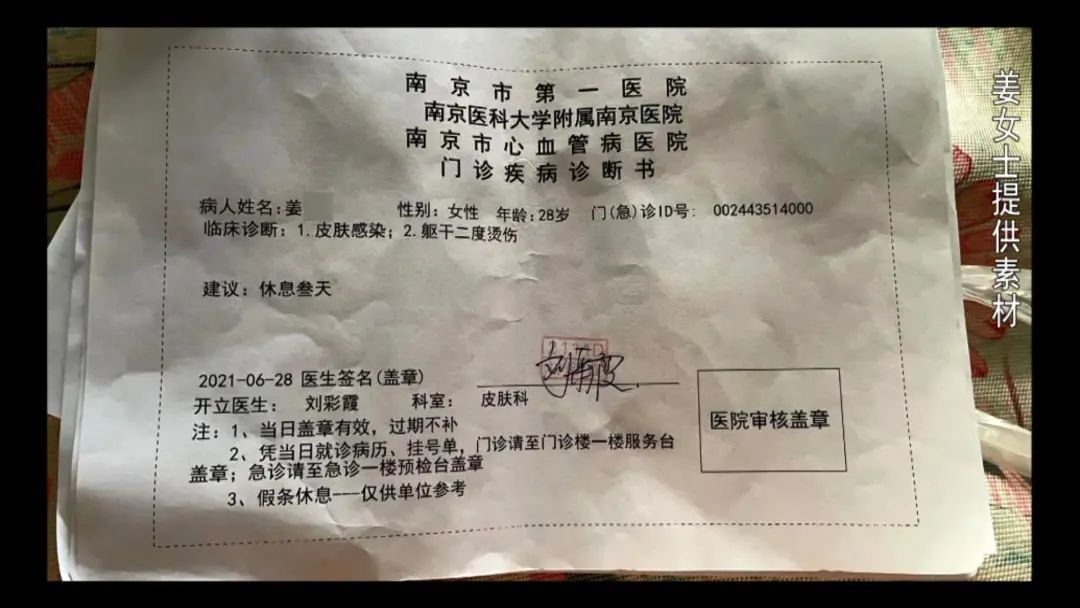 南京市第一医院
南京医科大学附属南京医院
南京市心血管病医院
门诊疾病诊断书
病人姓名:姜 性别:女性 年龄:28岁 门(急)诊ID号: 002443514000
临床诊断:1.皮肤感染;2.躯干二度烫伤
建议:休息叁天
2021-06-28 医生签名(盖章)
开立医生: 刘彩霞 科室: 皮肤科
注:1、当日盖章有效,过期不补
2、凭当日就诊病历、挂号单,门诊请至门诊楼一楼服务台
盖章;急诊请至急诊一楼预检台盖章
3、假条休息---仅供单位参考
医院审核盖章
姜女士提供素材